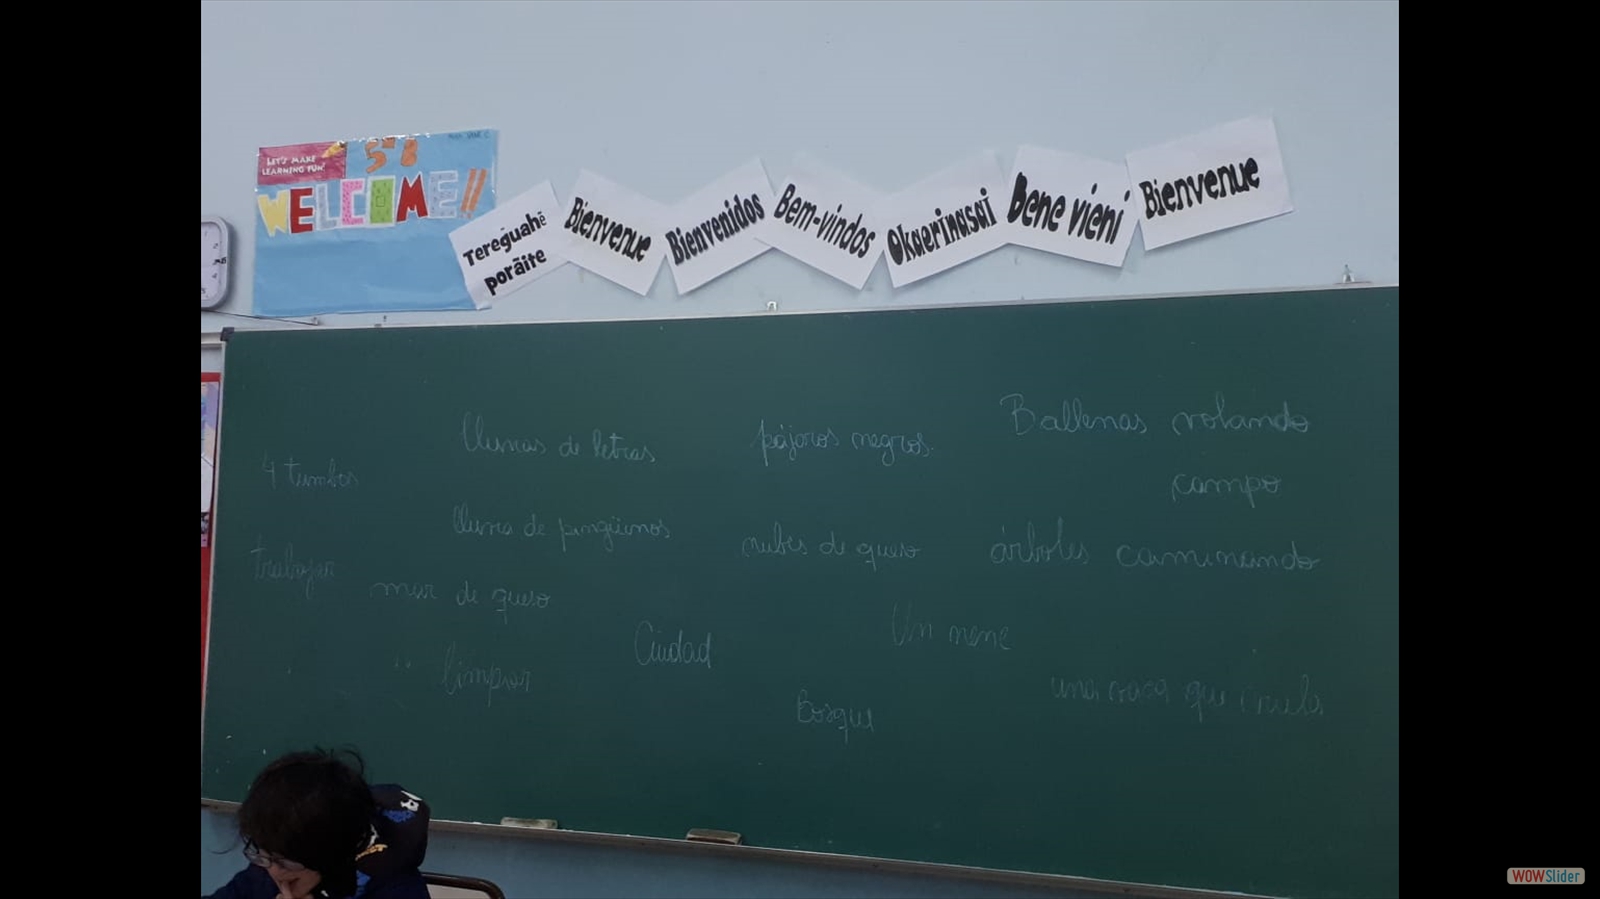 LET'S MAKE
LEARNING FUN!
5º B
WELCOME!!
Tereguahẽ
porãite
Bienvenue
Bienvenidos
Bem-vindos
Okaerinasai
Bene vieni
Bienvenue
4 tumbas
lluvias de letras
pájaros negros.
Ballenas volando
campo
lluvia de pingüinos
nubes de queso
árboles caminando
trabajar
mar de queso
Ciudad
Un nene
limpiar
Bosque
una que
WOWSlider